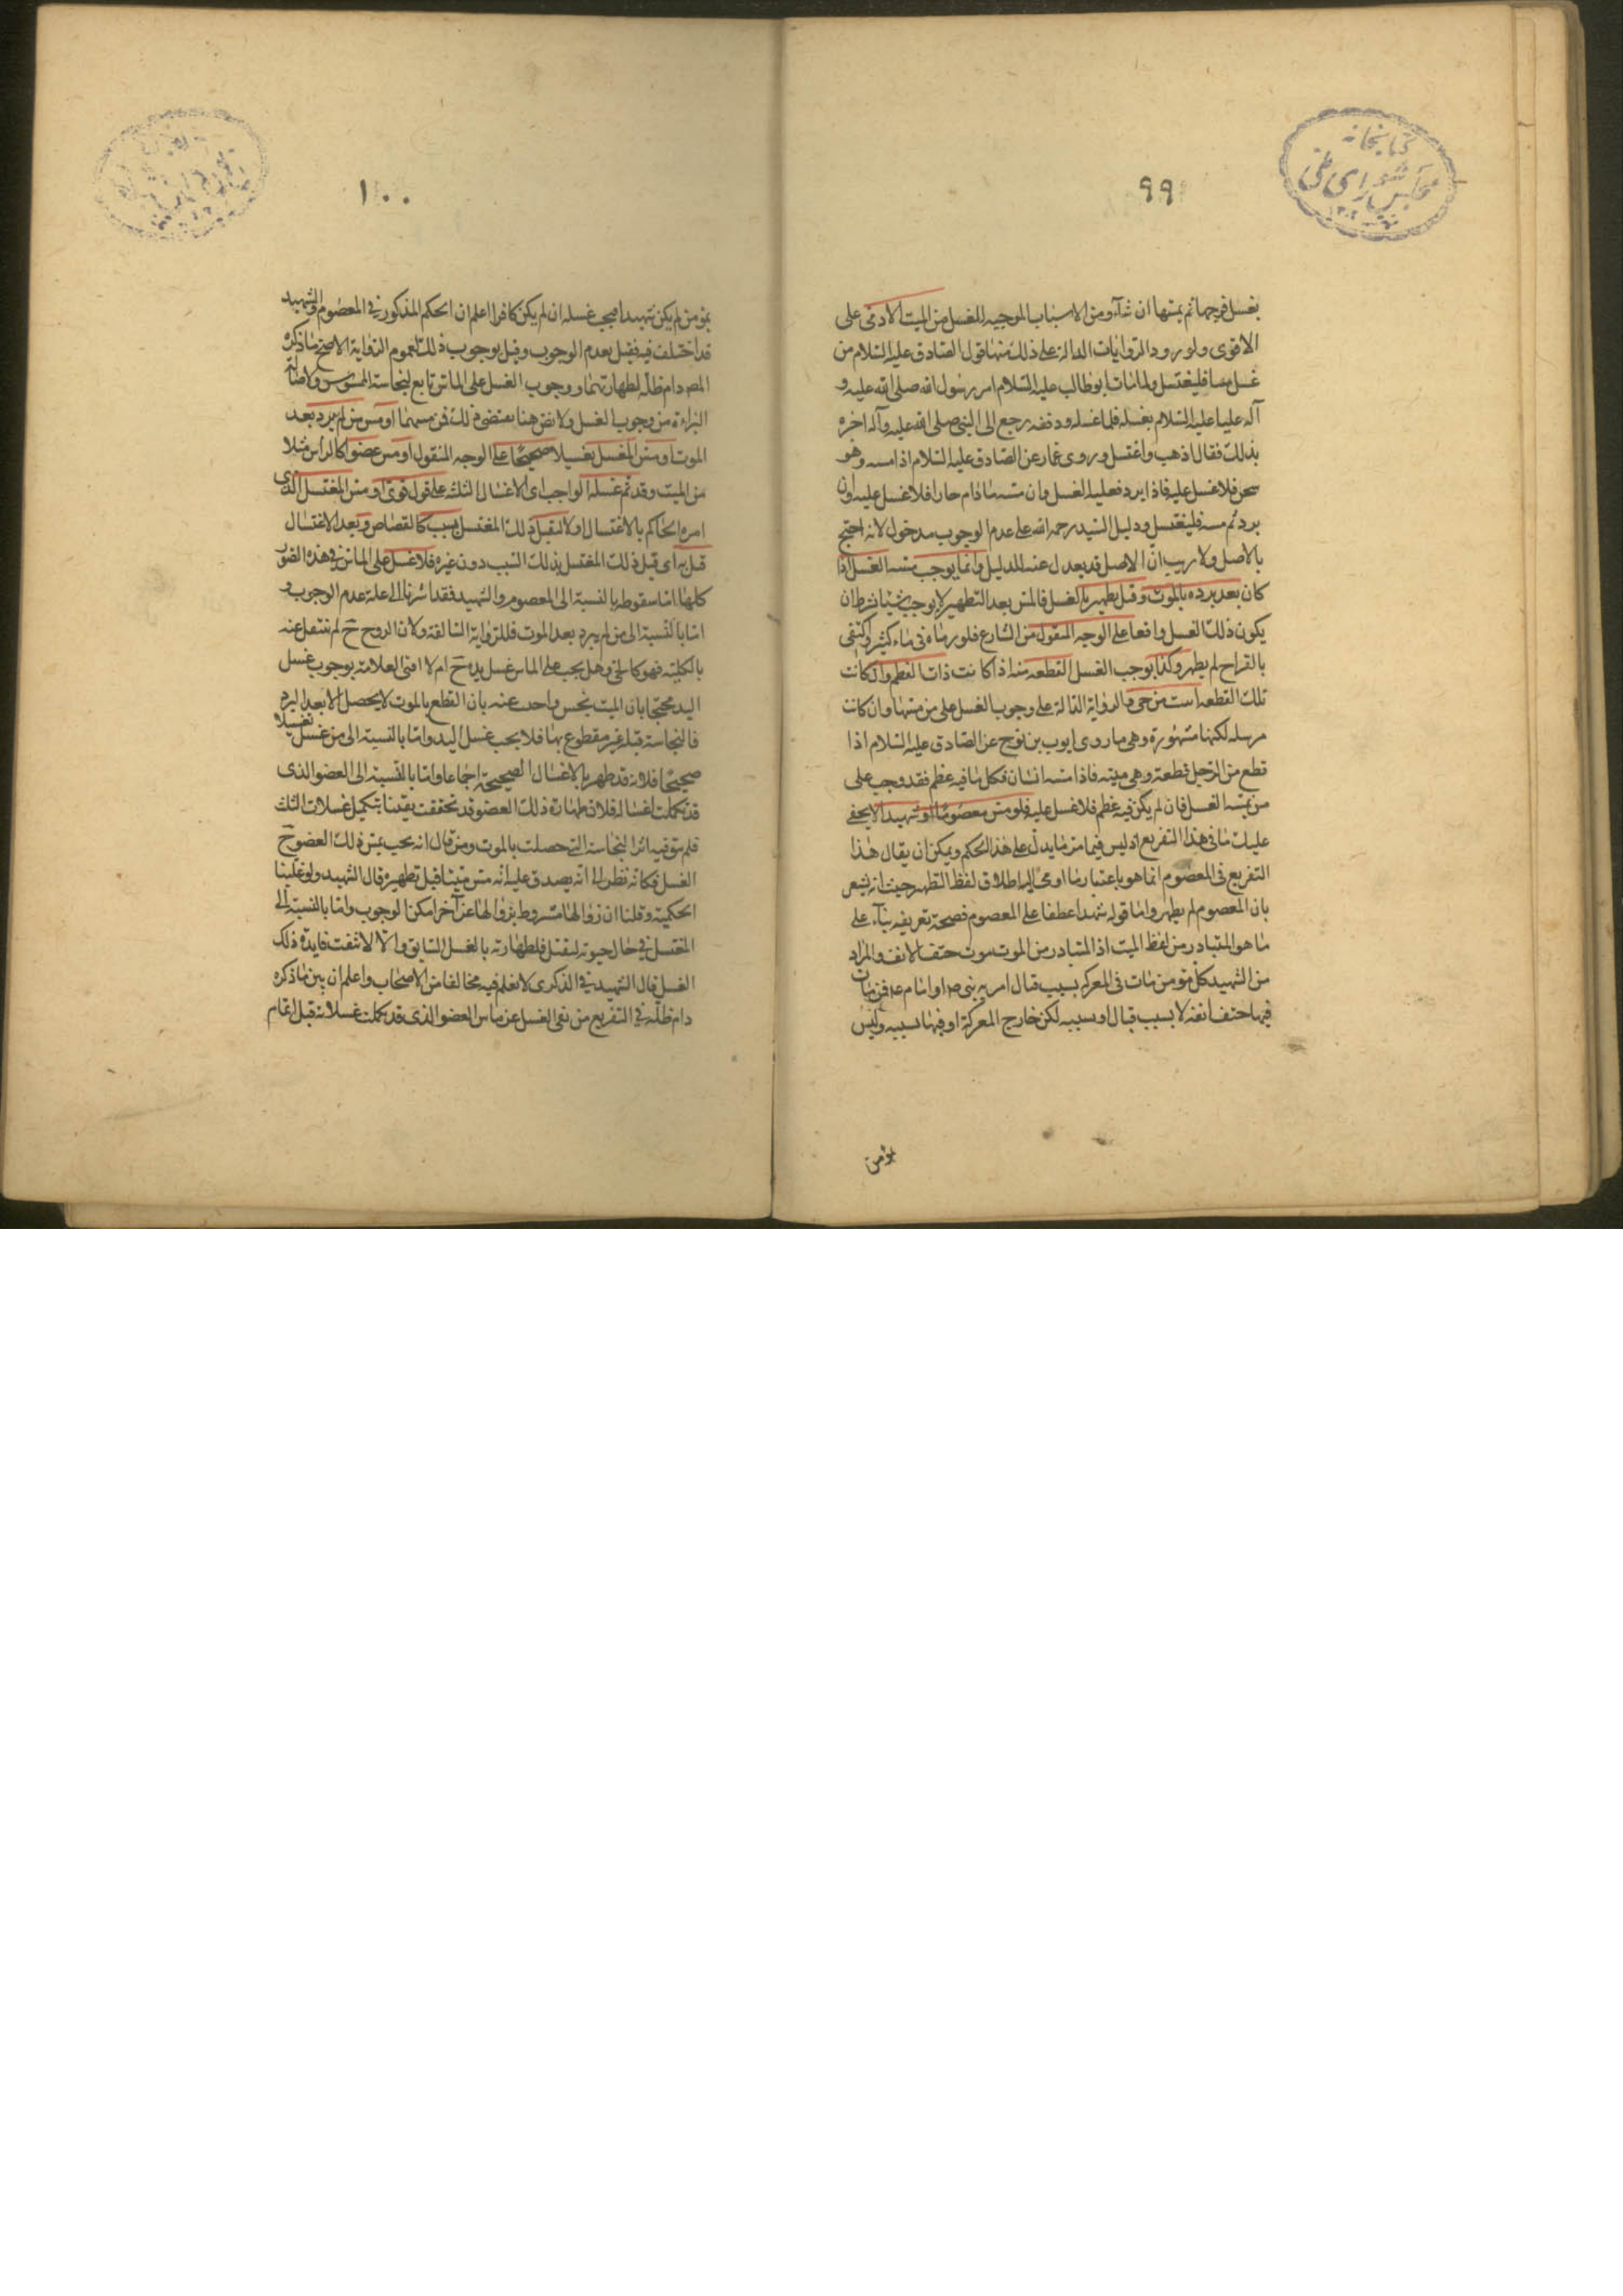 كتابخانه
مجلس شورای ملی
٩٩
بغسل فرجها ثم يمسها ان شآء ومن الاسباب الموجبه للغسل مس الميت الادمى على
الاقوى ولورود الروايات الدالة على ذلك منها قول الصادق عليه السلام من
غسل ميتا فليغتسل ولما مات ابو طالب عليه السلام امر رسول الله صلى الله عليه و
آله عليا عليه السلام بغسله فلما غسله ودفنه رجع الى النبى صلى الله عليه وآله اخبره
بذلك فقال اذهب واغتسل وروى عمار عن الصادق عليه السلام اذا مسه وهو
سخن فلا غسل عليه فاذا برد فعليه الغسل وان مسه مادام حارا فلا غسل عليه وان
برد ثم مسه فليغتسل ودليل السيد رحمه الله على عدم الوجوب مدخول لانه احتج
بالاصل ولا ريب ان الاصل قد يعدل عنه للدليل وانما يوجب مسه الغسل اذا
كان بعد برده بالموت وقبل تطهيره بالغسل فالمس بعد التطهير لا يوجب شيئا بشرط ان
يكون ذلك الغسل واقعا على الوجه المنقول من الشارع فلو رماه فى ماء كثير واكتفى
بالقراح لم يطهر وكذا يوجب الغسل القطعه منه اذا كانت ذات العظم وان كانت
تلك القطعه ابينت من حى والرواية الدالة على وجوب الغسل على من مسها وان كانت
مرسله لكنها مشهورة وهى ما روى ايوب بن نوح عن الصادق عليه السلام اذا
قطع من الرجل قطعة وهى ميته فاذا مسه انسان فكل ما فيه عظم فقد وجب على
من يمسه الغسل فان لم يكن فيه عظم فلا غسل عليه فلو مس معصوما او شهيدا لا يخفى
عليك ما فى هذا التفريع اذ ليس فيما مر ما يدل على هذا الحكم ويمكن ان يقال هذا
التفريع فى المعصوم انما هو باعتبار ما اومى اليه اطلاق لفظ التطهير حيث انه يشعر
بان المعصوم لم يطهر واما قوله شهيدا عطفا على المعصوم فصحة تعريفه بنآء على
ما هو المتبادر من لفظ الميت اذ المتبادر من الموت موت حتف الانف والمراد
من الشهيد كل مؤمن مات فى المعركه بسبب قتال امر به نبى ص او امام ع فمن مات
فيها حتف انفه لا بسبب قتال او بسببه لكن خارج المعركة او فيها بسببه وليس
بؤمن
١٠٠
بمؤمن لم يكن شهيدا فيجب غسله ان لم يكن كافرا اعلم ان الحكم المذكور فى المعصوم والشهيد
قد اختلف فيه فقيل بعدم الوجوب وقيل بوجوب ذلك لعموم الرواية الاصح ما ذكره
المصـ دام ظلّه لطهارتهما ووجوب الغسل على الماس تابع لنجاسة الممسوس ولاصالة
البراءة من وجوب الغسل ولا نص هنا يقتضى ذلك فمن مسهما او مس من لم يبرد بعد
الموت او مس المغسل تغسيلا صحيحا على الوجه المنقول او مس عضوا كالرأس مثلا
من الميت وقد تم غسله الواجب اى الاغسال الثلثه على قول قوى او مس المغتسل الذى
امره الحاكم بالاغتسال اولا ليقتل ذلك المغتسل بسبب كالقصاص وبعد الاغتسال
قتل به اى قتل ذلك المغتسل بذلك السبب دون غيره فلا غسل على الماس فى هذه الصور
كلها اما سقوطه بالنسبة الى المعصوم والشهيد فقد اشرنا الى علة عدم الوجوب و
اما بالنسبة الى من لم يبرد بعد الموت فللرواية السالفة ولان الروح ح لم تنتقل عنه
بالكلية فهو كالحى وهل يجب على الماس غسل يده ح ام لا افتى العلامة بوجوب غسل
اليد محتجا بان الميت نجس واجب عنه بان القطع بالموت لا يحصل الا بعد البرد
فالنجاسة قبله غير مقطوع بها فلا يجب غسل اليد واما بالنسبة الى من غسل تغسيلا
صحيحا فلانه قد طهر بالاغسال الصحيحة اجماعا واما بالنسبة الى العضو الذى
قد تكملت اغساله فلان طهارة ذلك العضو قد تحققت يقينا بتكميل غسلات الثلث
فلم يبق فيه اثر النجاسة التى حصلت بالموت ومن قال انه يجب بمس ذلك العضو ح
الغسل فكانه نظر الى انه يصدق عليه انه مس ميتا قبل تطهيره قال الشهيد ولو غلبنا
الحكمية وقلنا ان زوالها مشروط بزوالها عن آخر امكن الوجوب واما بالنسبة الى
المغتسل فى حال حيوته ليقتل فلطهارته بالغسل السابق والا لانتفت فايدة ذلك
الغسل قال الشهيد فى الذكرى لا نعلم فيه مخالفا من الاصحاب واعلم ان بين ما ذكره
دام ظله فى التفريع من نفى الغسل عن ماس العضو الذى قد تكملت غسلاته قبل اتمام